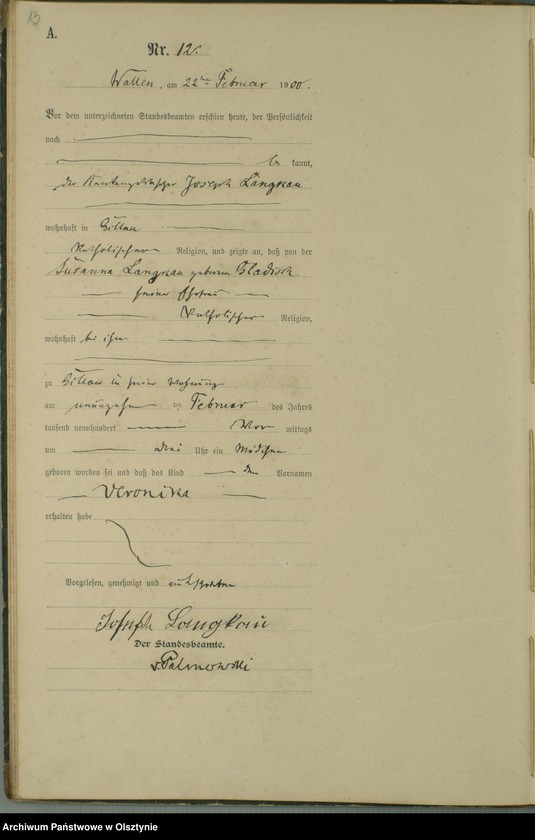 13
A.
Nr. 12.
Wallen, am 22ten Februar 1900.
Vor dem unterzeichneten Standesbeamten erschien heute, der Persönlichkeit
nach
be kannt,
der Joseph Langkau
wohnhaft in
katholischer Religion, und zeigte an, daß von der
Susanna Langkau geborene
seiner Ehefrau
katholischer Religion,
wohnhaft bei ihm
zu in seiner Wohnung
am neunzehnten ten Februar des Jahres
tausend neunhundert Vor mittags
um drei Uhr ein Mädchen
geboren worden sei und daß das Kind den Vornamen
Veronika
erhalten habe
Vorgelesen, genehmigt und unterschrieben
Joseph Langkau
Der Standesbeamte.
vPalmowski
Archiwum Państwowe w Olsztynie